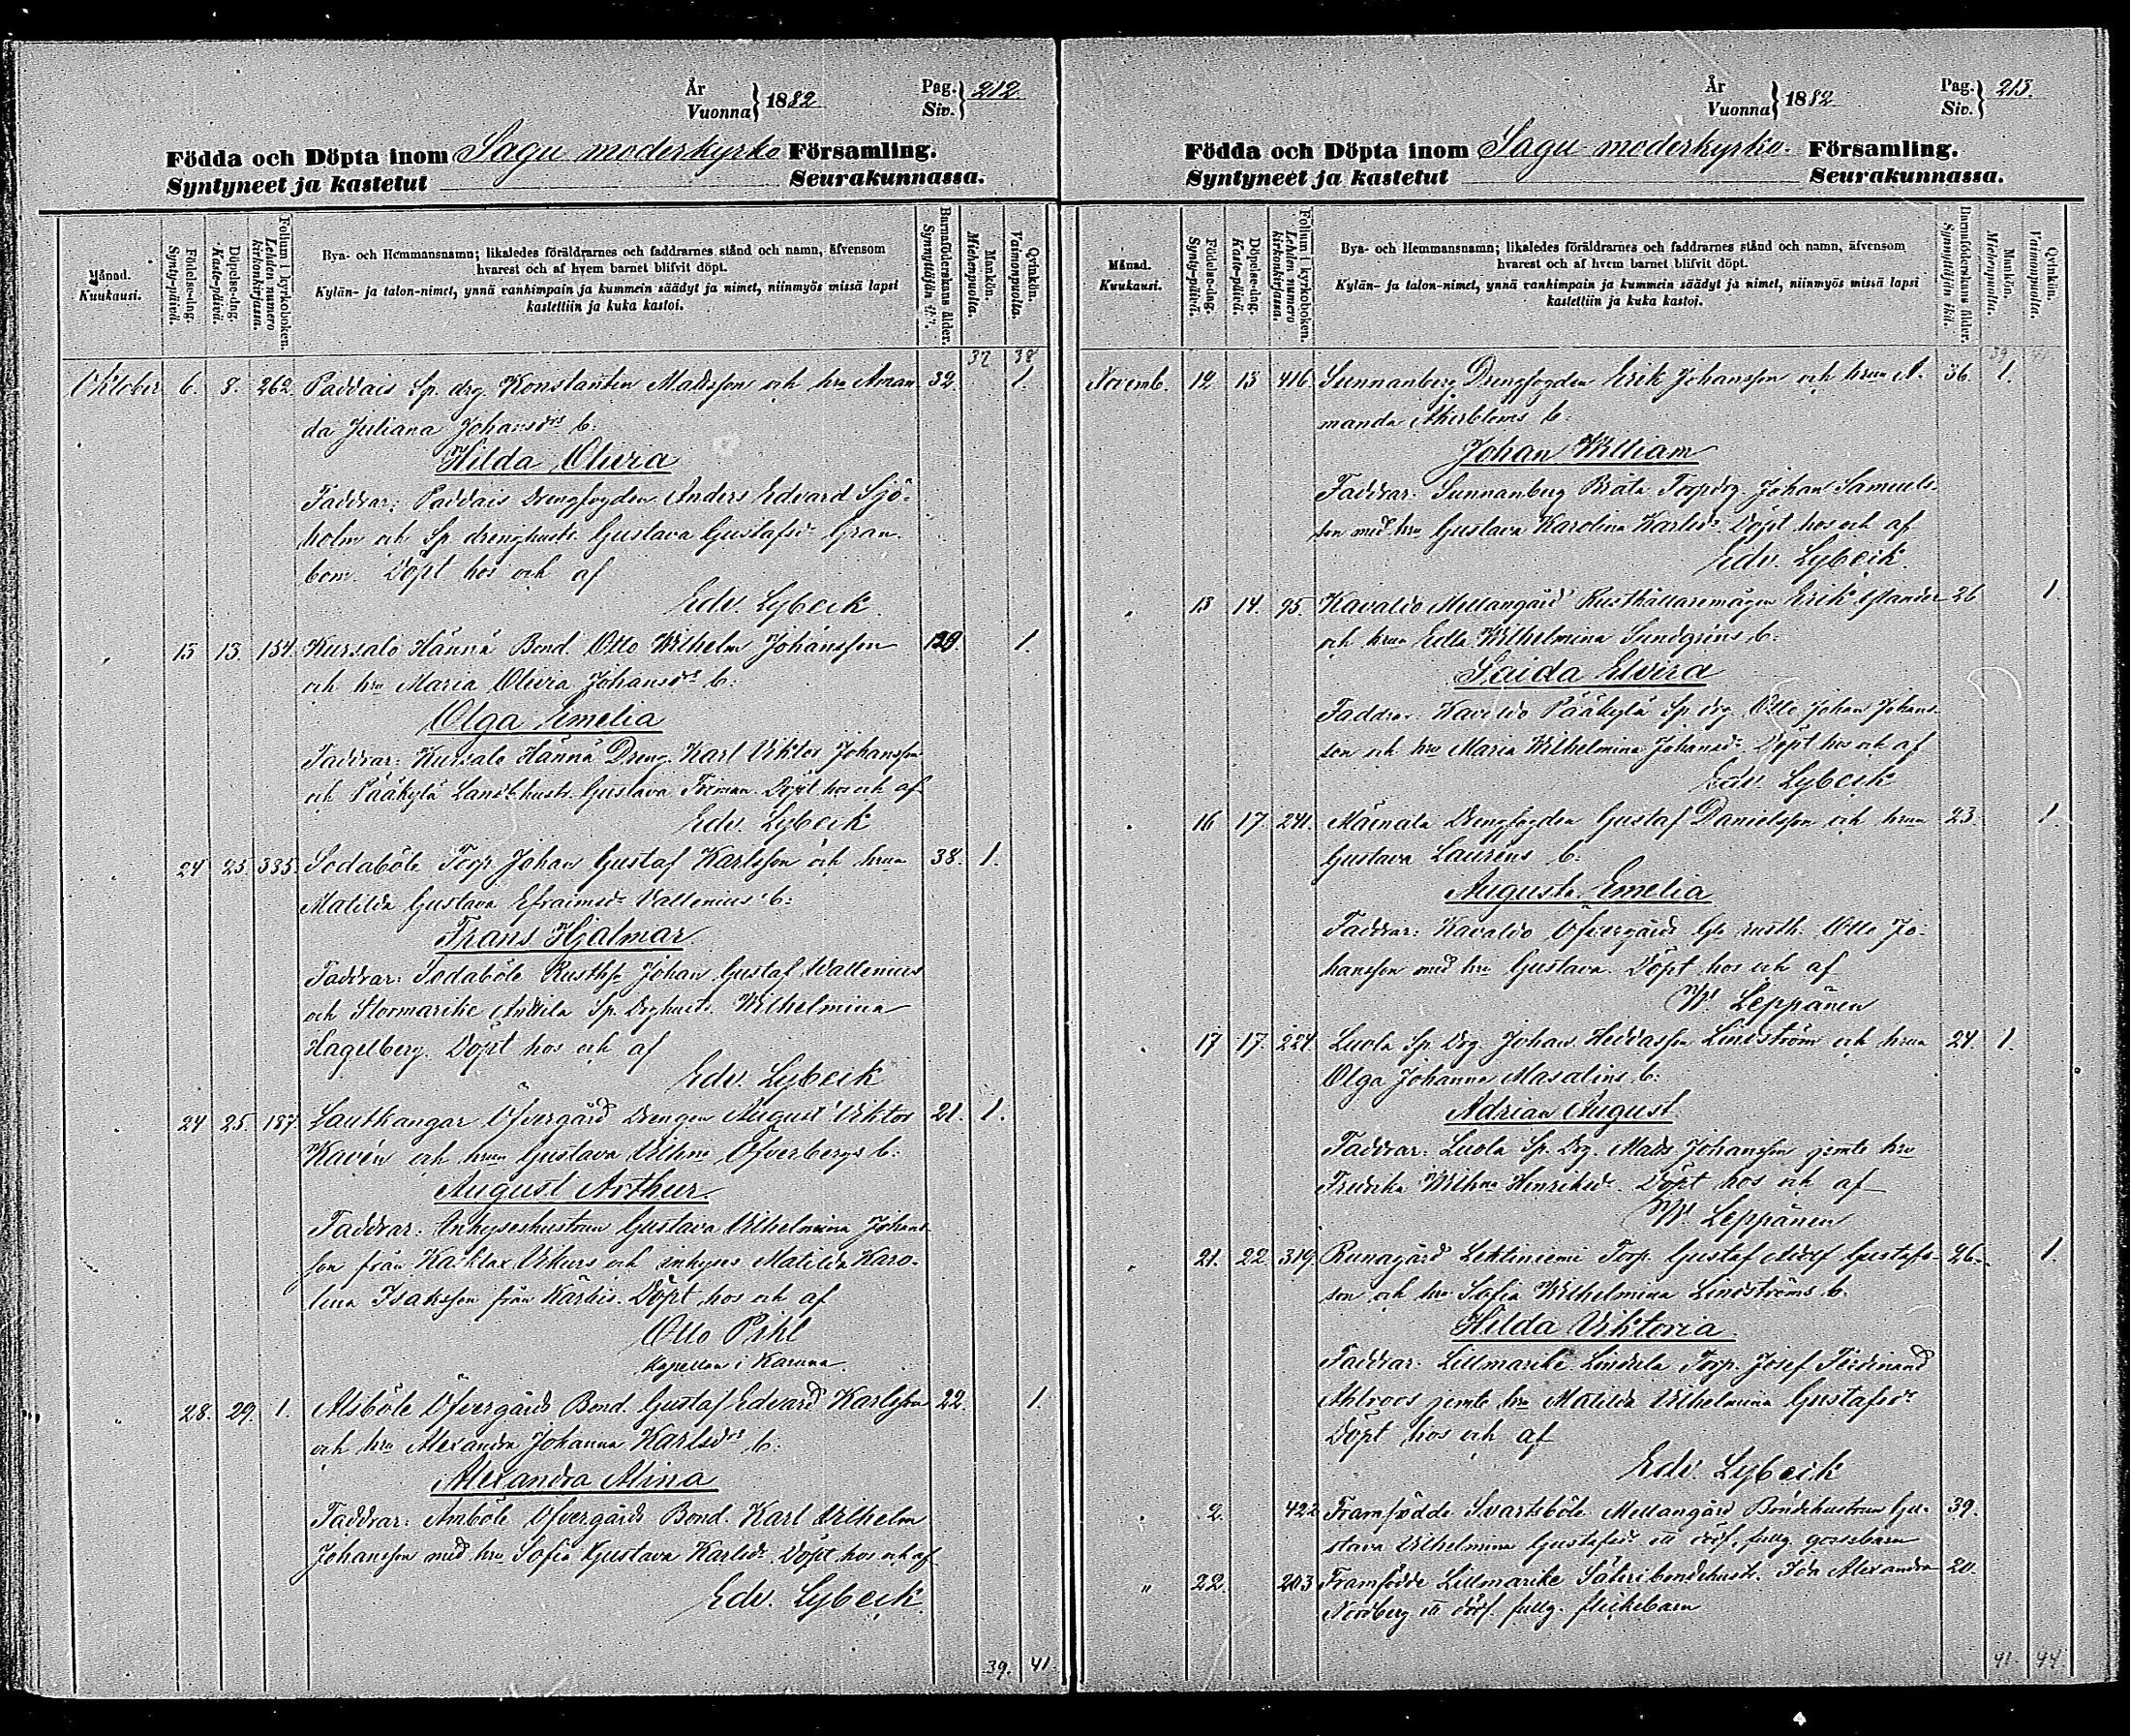 År
Vuonna } 1882
Pag.
Siv. } 212.
Födda och Döpta inom Sagu moderkyrko Församling.
Syntyneet ja kastetut Seurakunnassa.
Månad.
Kuukausi.
Födelse-dag.
Synty-päivä.
Döpelse-dag.
Kaste-päivä.
Folium i kyrkoboken.
Lehden numero kirkonkirjassa.
Bya- och Hemmansnamn; likaledes föräldrarnes och faddrarnes stånd och namn, äfvensom
hvarest och af hvem barnet blifvit döpt.
Kylän- ja talon-nimet, ynnä vanhimpain ja kummein säädyt ja nimet, niinmyös missä lapsi
kastettiin ja kuka kastoi.
Barnaföderskans ålder.
Synnyttäjän ikä.
Mankön.
Miehenpuolta.
Qvinkön.
Vaimonpuolta.
37 38
Oktober 6. 8. 262. Paddais Sp. drg. Konstantin Madsson och hru Aman- 32. 1.
da Juliana Johansdrs b:
Hilda Olivia
Faddrar: Paddais Drengfogden Anders Edvard Sjö-
holm och Sp drenghustr. Gustava Gustafsdr Gran-
bom. Döpt hos och af
Edv. Lybeck.
" 13 13. 154. Kursalo Hännä Bond. Otto Wilhelm Johansson 1.
och hru Maria Olivia Johansdrs b:
Olga Emelia
Faddrar: Kursalo Hännä Dreng Karl Viktor Johansson
och Pääkylä Landb.hustr. Gustava Döpt hos och af
Edv. Lybeck
" 24 25. 335. Sodaböle Torp. Johan Gustaf Karlsson och hrun 38. 1.
Matilda Gustava Efraimsdr Vallenius' b:
Frans Hjalmar
Faddrar: Sodaböle Rusth. Johan Gustaf Wallenius
och Stormarike Anttila Sp. Drghustr. Wilhelmina
Hagelberg. Döpt hos och af
Edv. Lybeck
" 24 25. 187. Lautkangar Öfvergård Drengen August Viktor 21. 1.
Kavén och hrun Gustava Vilhna Öfverbergs b:
August Arthur.
Faddrar: Inhyseshustrun Gustava Vilhelmina Johans-
son från och inhyses Matilda Karo-
lina Isaksson från Kärkis. Döpt hos och af
Otto Pihl
Kapellan i Karuna.
" 28. 29. 1. Alsböle Öfvergård Bond. Gustaf Edvard Karlsson 22. 1.
och hru Alexandra Johanna Karlsdrs b:
Alexandra Alina
Faddrar: Öfvergård Bond. Karl Vilhelm
Johansson med hru Sofia Gustava Karlsdr. Döpt hos och af
Edv. Lybeck.
39. 41.
År
Vuonna } 1882
Pag.
Siv. } 213.
Födda och Döpta inom Sagu moderkyrko. Församling.
Syntyneet ja kastetut Seurakunnassa.
Månad.
Kuukausi.
Födelse-dag.
Synty-päivä.
Döpelse-dag.
Kaste-päivä.
Folium i kyrkoboken.
Lehden numero kirkonkirjassa.
Bya- och Hemmansnamn; likaledes föräldrarnes och faddrarnes stånd och namn, äfvensom
hvarest och af hvem barnet blifvit döpt.
Kylän- ja talon-nimet, ynnä vanhimpain ja kummein säädyt ja nimet, niinmyös missä lapsi
kastettiin ja kuka kastoi.
Barnaföderskans ålder.
Synnyttäjän ikä.
Mankön.
Miehenpuolta.
Qvinkön.
Vaimonpuolta.
39. 41.
Novemb. 12 13 416. Sunnanberg Drengfogden Erik Johansson och hrun A- 36. 1.
manda Åkerbloms b:
Johan William
Faddrar. Sunnanberg Torpdrg. Johan Samuels-
son med hru Gustava Karolina Karlsdr. Döpt hos och af
Edv. Lybeck.
" 13 14. 95. Kavaldo Mellangård Rusthållaremågen Erik 26 1.
och hrun Edla Wilhelmina Sundgréns b:
Saida Elvira
Faddrar. Kavaldo Pääkylä Sp. drg. Otto Johan Johans-
son och hru Maria Wilhelmina Johansdr. Döpt hos och af
Edv. Lybeck
" 16 17. 241. Mäinala Drengfogden Gustaf Danielsson och hrun 23. 1.
Gustava Lauréns b:
Augusta Emelia
Faddrar: Kavaldo Öfvergård rusth. Otto Jo-
hansson med hru Gustava. Döpt hos och af
W. Leppänen
" 17 17. 224. Luola Sp. Drg. Johan Lindström och hrun 24. 1.
Olga Johanna Masalins b:
Adrian August
Faddrar: Luola Sp. Drg. Mats Johansson jemte hru
Fredrika Wilhna Henriksdr. Döpt hos och af
W. Leppänen
" 21. 22 319. Runagård Lehtiniemi Torp. Gustaf Adolf Gustafs- 26. 1.
son och hru Sofia Wilhelmina Lindströms b.
Hilda Viktoria.
Faddrar: Lillmarike Lindela Torp. Josef Ferdinand
Ahlroos jemte hru Matilda Vilhelmina Gustafsdr
Döpt hos och af
Edv. Lybeck
" 2. 422 Framfödde Svartsböle Mellangård Bondehustrun Gu- 39.
stava Vilhelmina Gustafsdr ett dödf. fullg. gossebarn
" 22. 203 Framfödde Lillmarike Säteribondehustr. Ida Alexandra 20.
Nordberg ett dödf. fullg. flickebarn
41. 44.